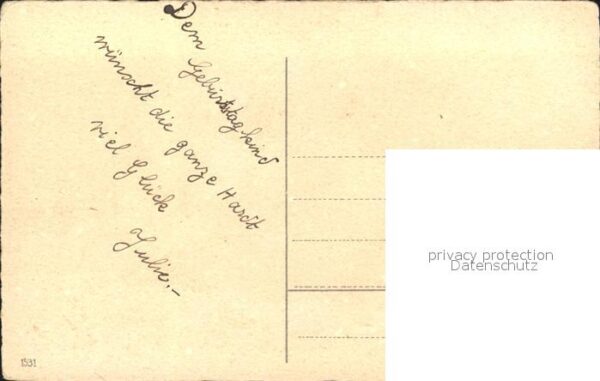 Dem Geburtstagkind
wünscht die ganze Hardt
viel Glück
Julie.-
1531
privacy protection
Datenschutz